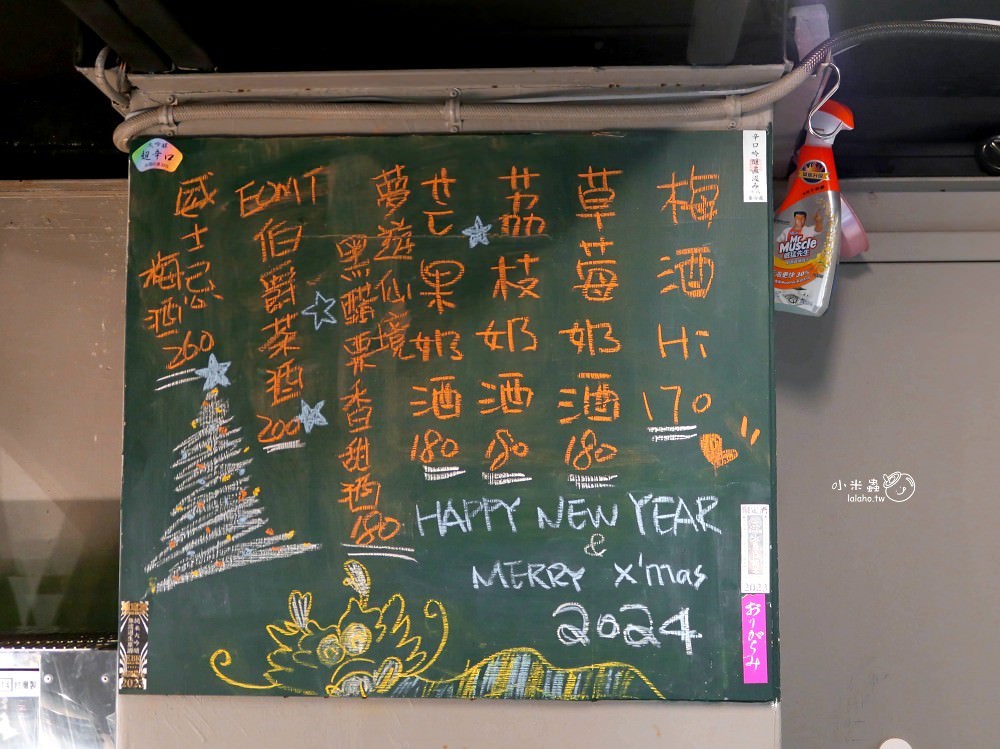 梅酒Hi 170
草莓奶酒 180
荔枝奶酒 180
芒果奶酒 180
夢遊仙境
黑醋栗香甜酒 180
EOMT伯爵茶酒 200
威士忌
梅酒 260
HAPPY NEW YEAR
&
MERRY X'mas
2024
超辛口
Mr Muscle
威猛先生
おりがらみ
小米蟲
lalaho.tw